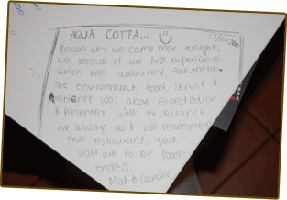 AQUA COTTA...
Reason why we came back tonight,
was because of our first experience
which was absolutely fantastic.
The environment, food, service &
Ambience was above expectation
& presented with excellence
We always do & will return to
this restaurant, your
staff are to be comm
ended